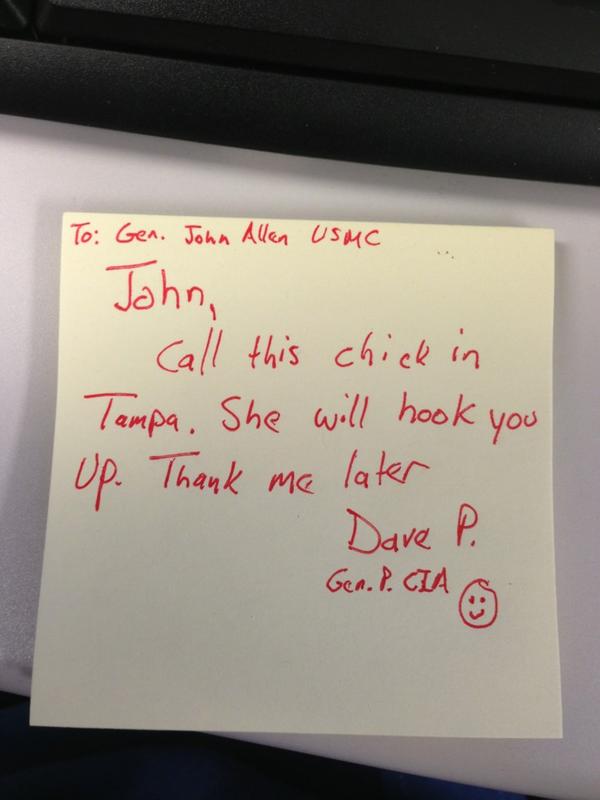 To: Gen. John Allen USMC
John,
Call this chick in
Tampa. She will hook you
Up. Thank me later
Dave P.
Gen. P. CIA